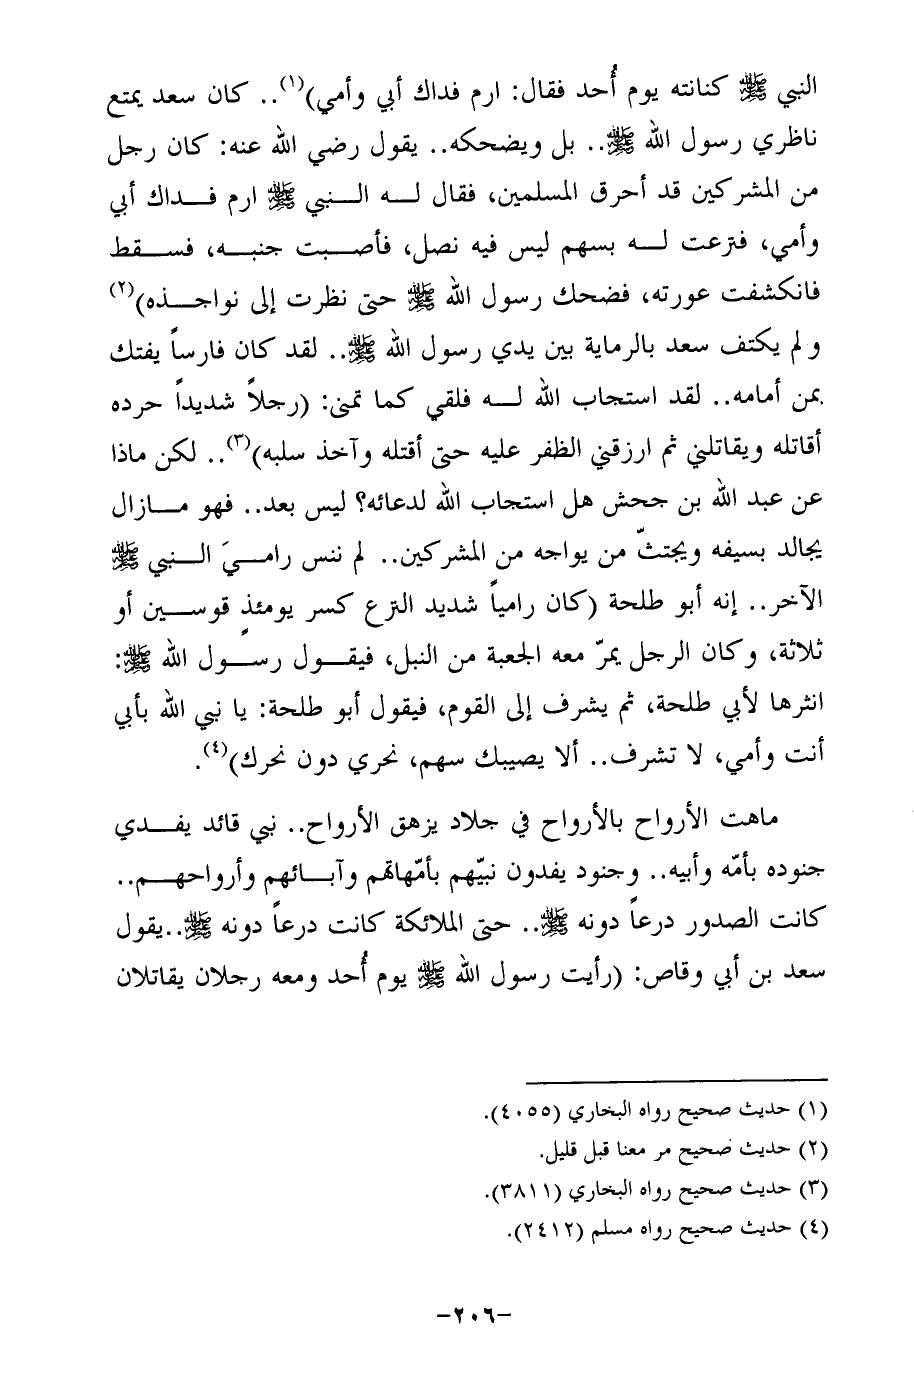 النبي ﷺ كنانته يوم أُحد فقال: ارم فداك أبي وأمي)(١).. كان سعد يمتع
ناظري رسول الله ﷺ.. بل ويضحكه.. يقول رضي الله عنه: كان رجل
من المشركين قد أحرق المسلمين، فقال لـــه الـــنبي ﷺ ارم فـــداك أبي
وأمي، فترعت لـــه بسهم ليس فيه نصل، فأصـــبت جنبـــه، فســـقط
فانكشفت عورته، فضحك رسول الله ﷺ حتى نظرت إلى نواجـــذه)(٢)
ولم يكتف سعد بالرماية بين يدي رسول الله ﷺ.. لقد كان فارساً يفتك
بمن أمامه.. لقد استجاب الله لـــه فلقي كما تمنى: (رجلاً شديداً حرده
أقاتله ويقاتلني ثم ارزقني الظفر عليه حتى أقتله وآخذ سلبه)(٣).. لكن ماذا
عن عبد الله بن جحش هل استجاب الله لدعائه؟ ليس بعد.. فهو مـــازال
يجالد بسيفه ويجتثّ من يواجه من المشركين.. لم ننس رامـــيَ الـــنبي ﷺ
الآخر.. إنه أبو طلحة (كان رامياً شديد الترع كسر يومئذٍ قوســـين أو
ثلاثة، وكان الرجل يمرّ معه الجعبة من النبل، فيقـــول رســـول الله ﷺ:
انثرها لأبي طلحة، ثم يشرف إلى القوم، فيقول أبو طلحة: يا نبي الله بأبي
أنت وأمي، لا تشرف.. ألا يصيبك سهم، نحري دون نحرك)(٤).
ماهت الأرواح بالأرواح في جلاد يزهق الأرواح.. نبي قائد يفـــدي
جنوده بأمّه وأبيه.. وجنود يفدون نبيّهم بأمّهاتهم وآبـــائهم وأرواحهـــم..
كانت الصدور درعاً دونه ﷺ.. حتى الملائكة كانت درعاً دونه ﷺ..يقول
سعد بن أبي وقاص: (رأيت رسول الله ﷺ يوم أُحد ومعه رجلان يقاتلان
(١) حديث صحيح رواه البخاري (٤٠٥٥).
(٢) حديث صحيح مر معنا قبل قليل.
(٣) حديث صحيح رواه البخاري (٣٨١١).
(٤) حديث صحيح رواه مسلم (٢٤١٢).
-٢٠٦-